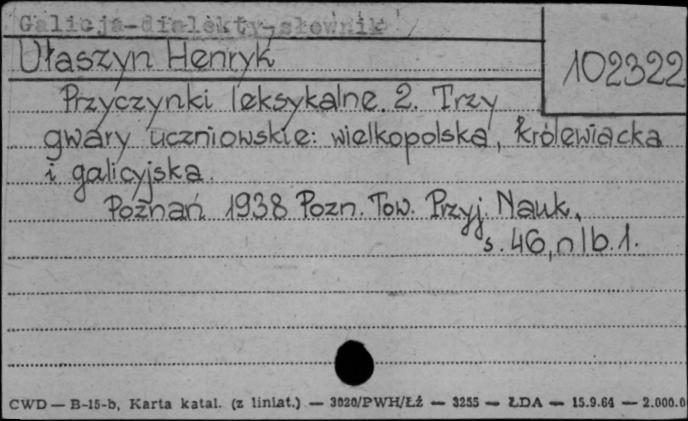 Galicja-dialekty-słownik
Ułaszyn Henryk
102322
Przyczynki leksykalne. 2. Trzy
gwary uczniowskie: wielkopolska, królewiacka
i galicyjska.
Poznań 1938 Pozn. Tow. Przyj. Nauk,
s. 46, nlb. 1.
CWD — B-15-b, Karta katal. (z liniat.) — 3020/PWH/Łź — 3255 — ŁDA — 15.9.64 — 2.000.0